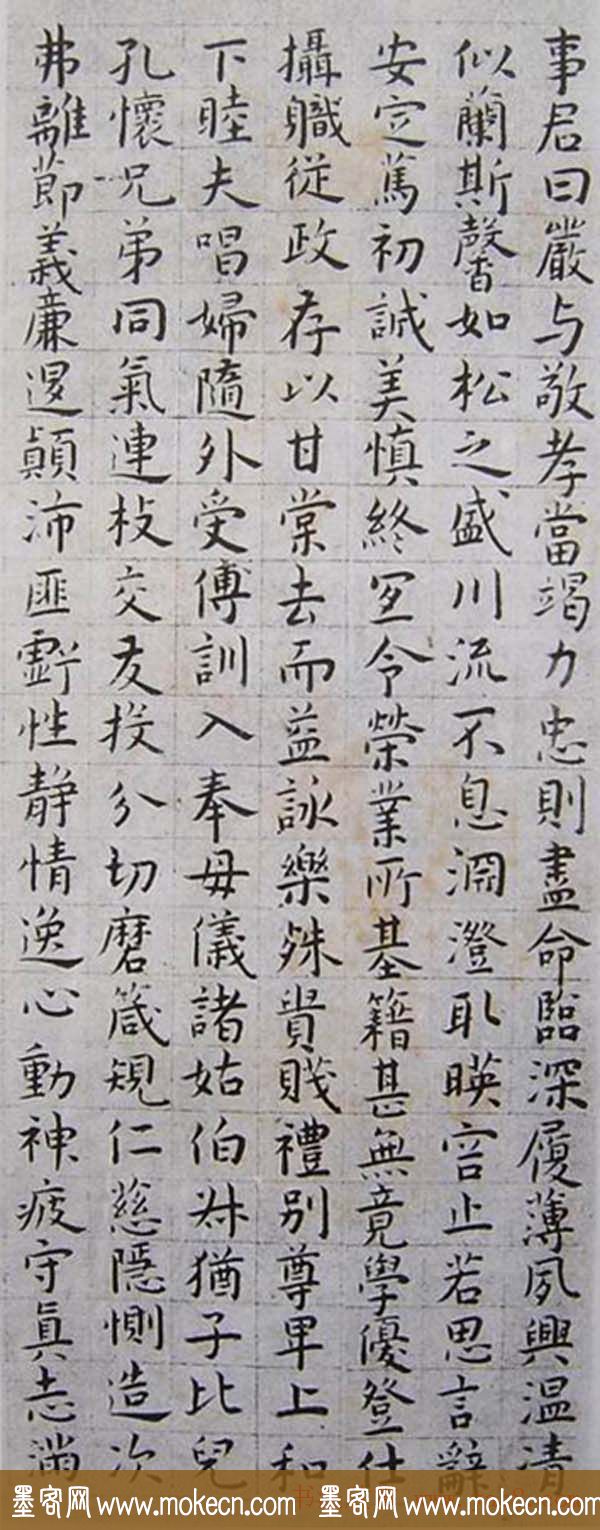 事君曰嚴与敬孝當竭力忠則盡命臨深履薄夙興温清
似蘭斯馨如松之盛川流不息淵澄取暎容止若思言辭
安定篤初誠美慎終宜令榮業所基籍甚無竟學優登仕
攝職從政存以甘棠去而益詠樂殊貴賤禮別尊卑上和
下睦夫唱婦隨外受傅訓入奉母儀諸姑伯叔猶子比兒
孔懷兄弟同氣連枝交友投分切磨箴規仁慈隱惻造次
弗離節義廉退顛沛匪虧性静情逸心動神疲守真志滿
墨客网 www.mokecn.com 墨客网 www.mokecn.com